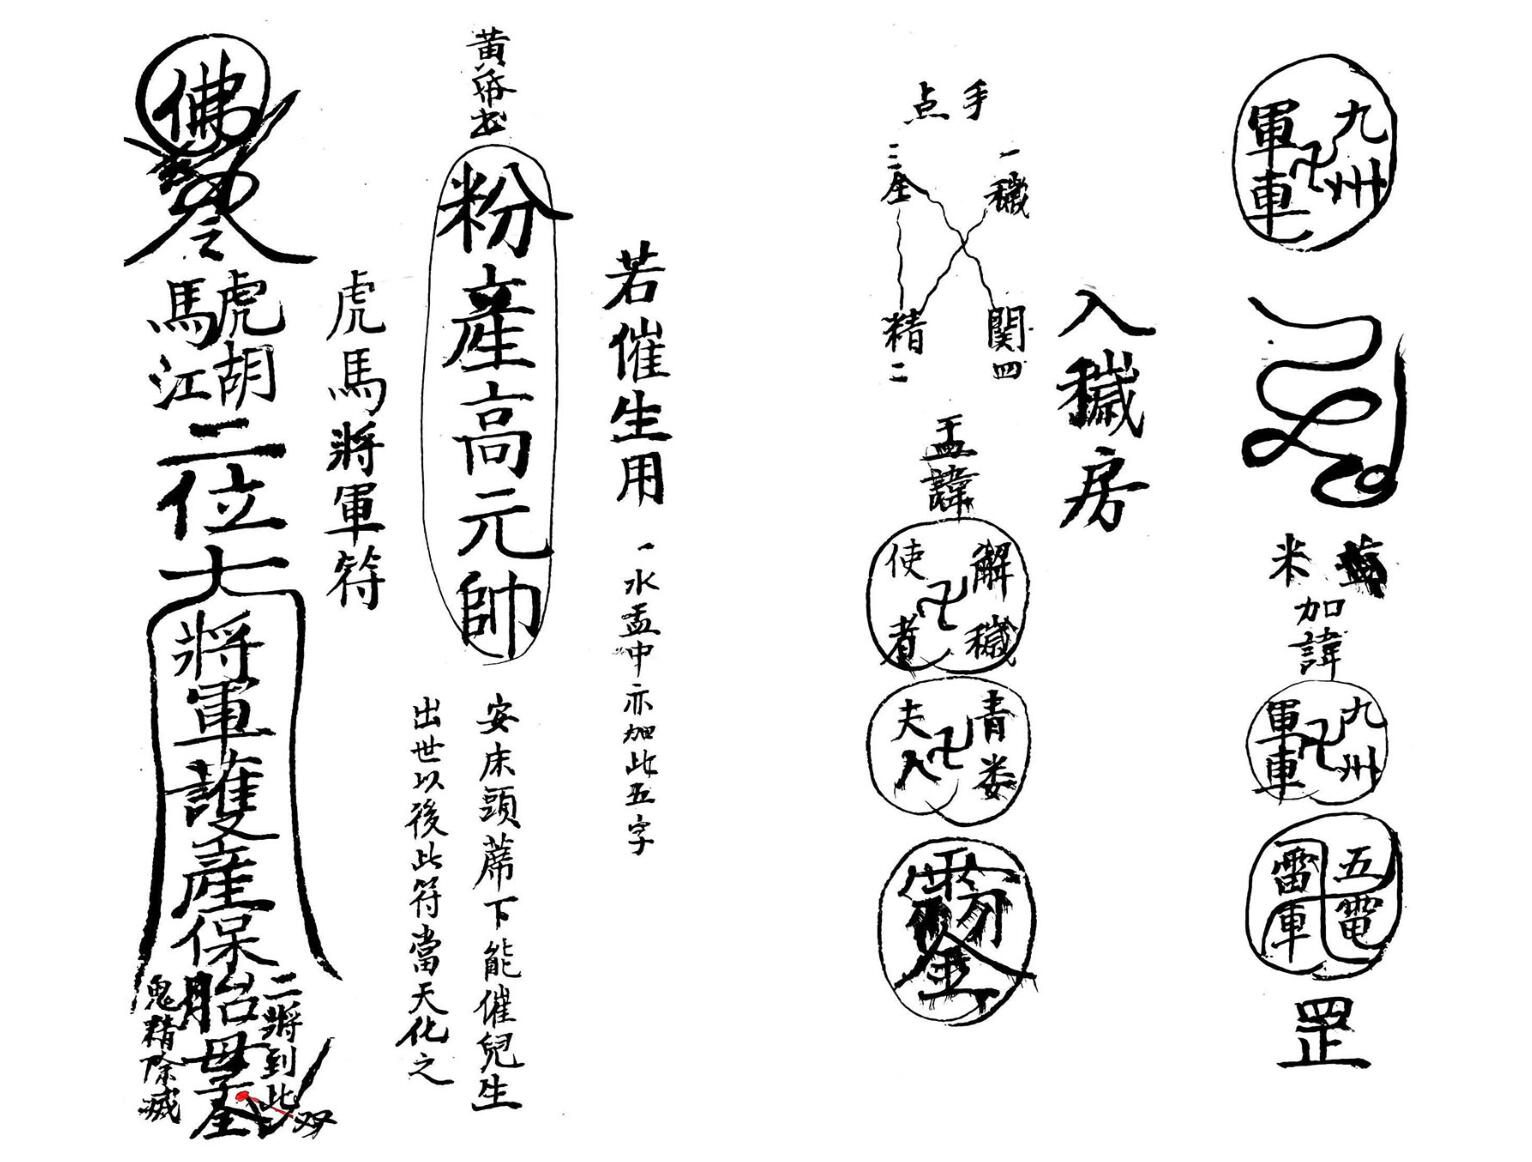 九州
卍
軍車
米
加諱
九州
卍
軍車
五電
雷車
罡
入穢房
手点
一穢
二精
三全
関四
盂諱
解穢
卍
使者
青娄
卍
夫人
若催生用
一水盂中亦加此五字
粉產高元帥
安床頭蓆下能催兒生
出世以後此符當天化之
虎馬將軍符
佛
虎胡
馬江
二位大將軍護產保胎母子全
二將到此
鬼精除滅